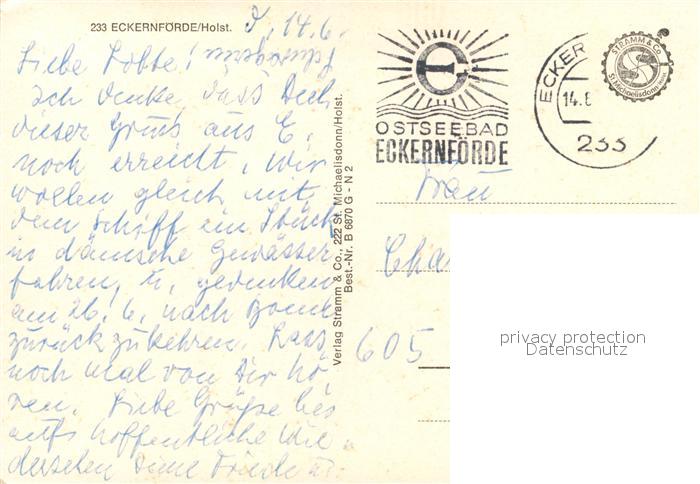 233 ECKERNFÖRDE/Holst.
14.6.
Liebe Lotte!
Ich denke, dass Dich
dieser Gruss aus E.
noch erreicht, Wir
wollen gleich mit
dem Schiff ein Stück
in dänische Gewässer
fahren, u. gedenken
am 26. 6. nach
zurückzukehren. Lass
noch mal von Dir hö
ren. Liebe Grüße bis
aufs hoffentliche Wie
dersehen Deine
Verlag Stramm & Co., 222 St. Michaelisdonn/Holst.
Best.-Nr. B 6870 G - N 2
OSTSEEBAD
ECKERNFÖRDE
ECKER
14.6
233
STRAMM & Co
St. Michaelisdonn
Frau
Cha
605
privacy protection
Datenschutz